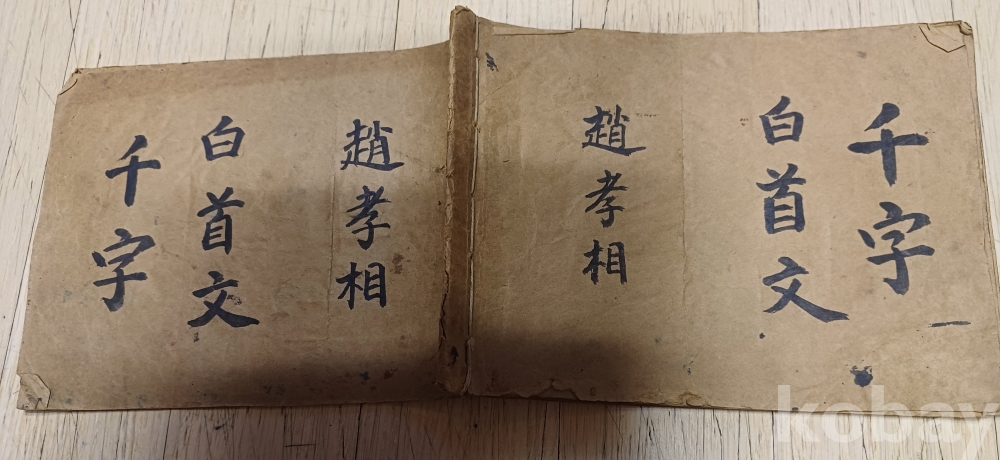 千字
白首文
趙孝相
趙孝相
白首文
千字
kobay